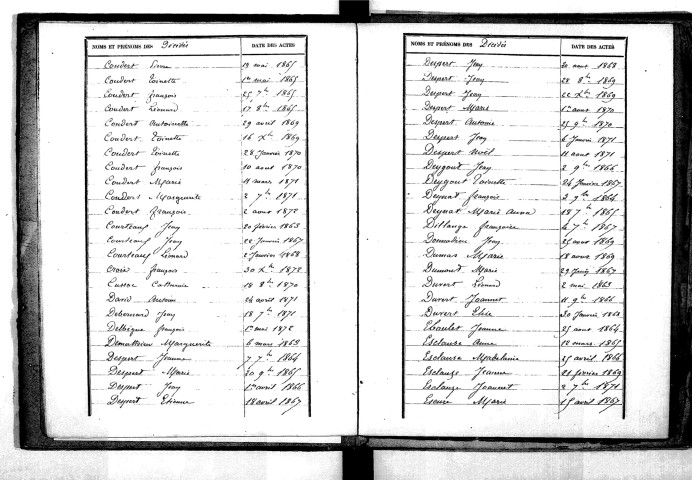 NOMS ET PRÉNOMS DES Décédés DATE DES ACTES
Coudert Pierre 19 mai 1865
Coudert Toinette 1er mai 1865
Coudert françois 25 7bre 1865
Coudert Léonard 17 8bre 1865
Coudert Antoinette 29 avril 1869
Coudert Toinette 16 Xbre 1869
Coudert Toinette 28 Janvier 1870
Coudert françois 10 aout 1870
Coudert Marie 11 mars 1871
Coudert Marguerite 2 7bre 1871
Coudert françois 2 aout 1872
Courteaud Jeny 20 février 1863
Courteaud Jeny 22 Janvier 1867
Courteaud Léonard 2 Janvier 1868
Croix françois 30 Xbre 1872
Cussac Catherine 18 8bre 1870
David Antoine 26 avril 1871
Jeny 18 7bre 1871
françois 1er mai 1872
Demathieu Marguerite 6 mars 1863
Despert Jeanne 7 7bre 1864
Despert Marie 20 9bre 1865
Despert Jeny 1er avril 1866
Despert Etienne 18 avril 1867
NOMS ET PRÉNOMS DES Décédés DATE DES ACTES
Despert Jeny 20 aout 1868
Despert Jeny 28 8bre 1869
Despert Jeny 22 Xbre 1869
Despert Marie 1er aout 1870
Despert Antoine 25 9bre 1870
Despert Jeny 6 Janvier 1871
Despert Noël 11 aout 1871
Deygout Jeny 2 9bre 1866
Deygout Toinette 24 Janvier 1867
françois 2 9bre 1864
Marie Anna 18 7bre 1865
françoise 4 7bre 1867
Jeny 25 aout 1869
Dumas Marie 18 aout 1869
Dumont Marie 1867
Duvert Léonard 2 mai 1863
Duvert Jeannet 11 9bre 1866
Duvert Elise 30 Janvier 1868
Jeanne 25 aout 1864
Esclauze Anne 12 mars 1865
Esclauze Madeleine 25 avril 1866
Esclauze Jeanne 21 février 1869
Esclauze Jeannet 2 7bre 1871
Marie 15 avril 1867